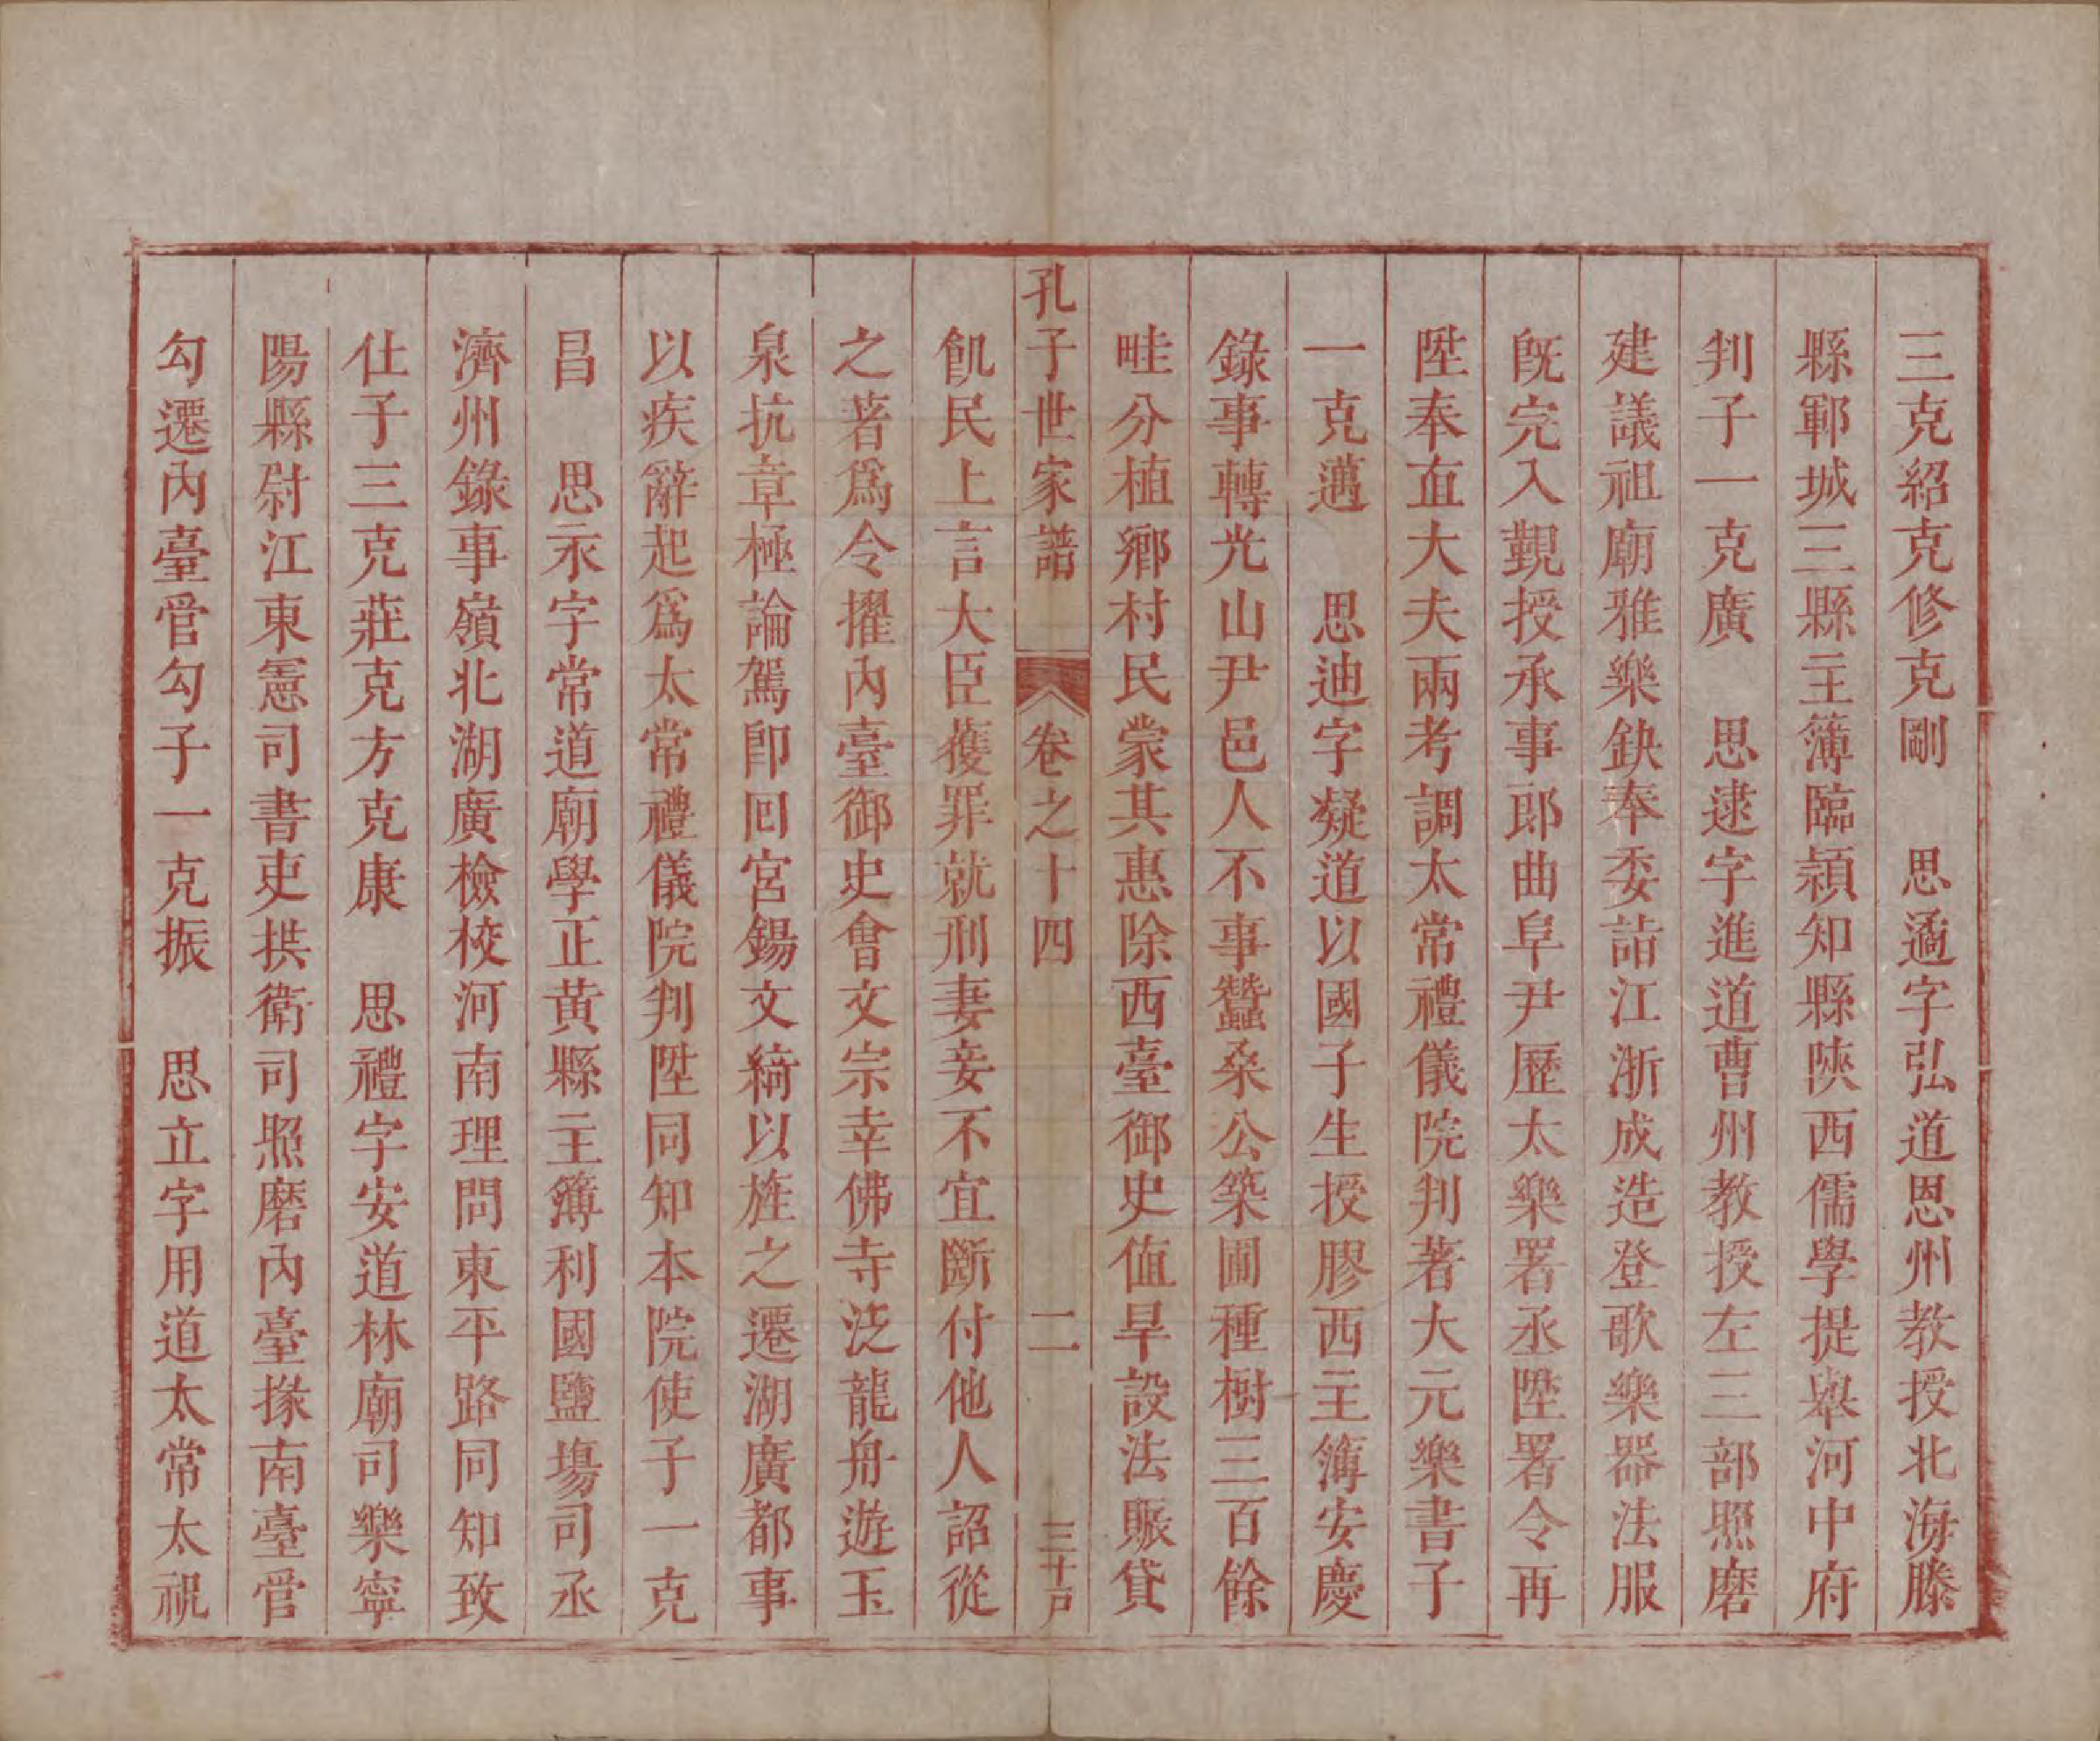 三克紹克修克剛　思遹字弘道恩州教授北海滕
縣鄆城三縣主簿臨潁知縣陝西儒學提舉河中府
判子一克廣　思逮字進道曹州教授左三部照磨
建議祖廟雅樂缺奉委詣江浙成造登歌樂器法服
既完入觐授承事郎曲阜尹歷太樂署丞陞署令再
陞奉直大夫兩考調太常禮儀院判著大元樂書子
一克邁　思迪字凝道以國子生授膠西主簿安慶
錄事轉光山尹邑人不事蠶桑公築圃種樹三百餘
畦分植鄉村民蒙其惠除西臺御史值旱設法賑貸
孔子世家譜　卷之十四　二　三十戶
飢民上言大臣獲罪就刑妻妾不宜斷付他人詔從
之著爲令擢內臺御史會文宗幸佛寺泛龍舟遊玉
泉抗章極論駕即回宮錫文綺以旌之遷湖廣都事
以疾辭起爲太常禮儀院判陞同知本院使子一克
昌　思永字常道廟學正黃縣主簿利國鹽場司丞
濟州錄事嶺北湖廣檢校河南理問東平路同知致
仕子三克莊克方克康　思禮字安道林廟司樂寧
陽縣尉江東憲司書吏拱衛司照磨內臺掾南臺管
勾遷內臺管勾子一克振　思立字用道太常太祝